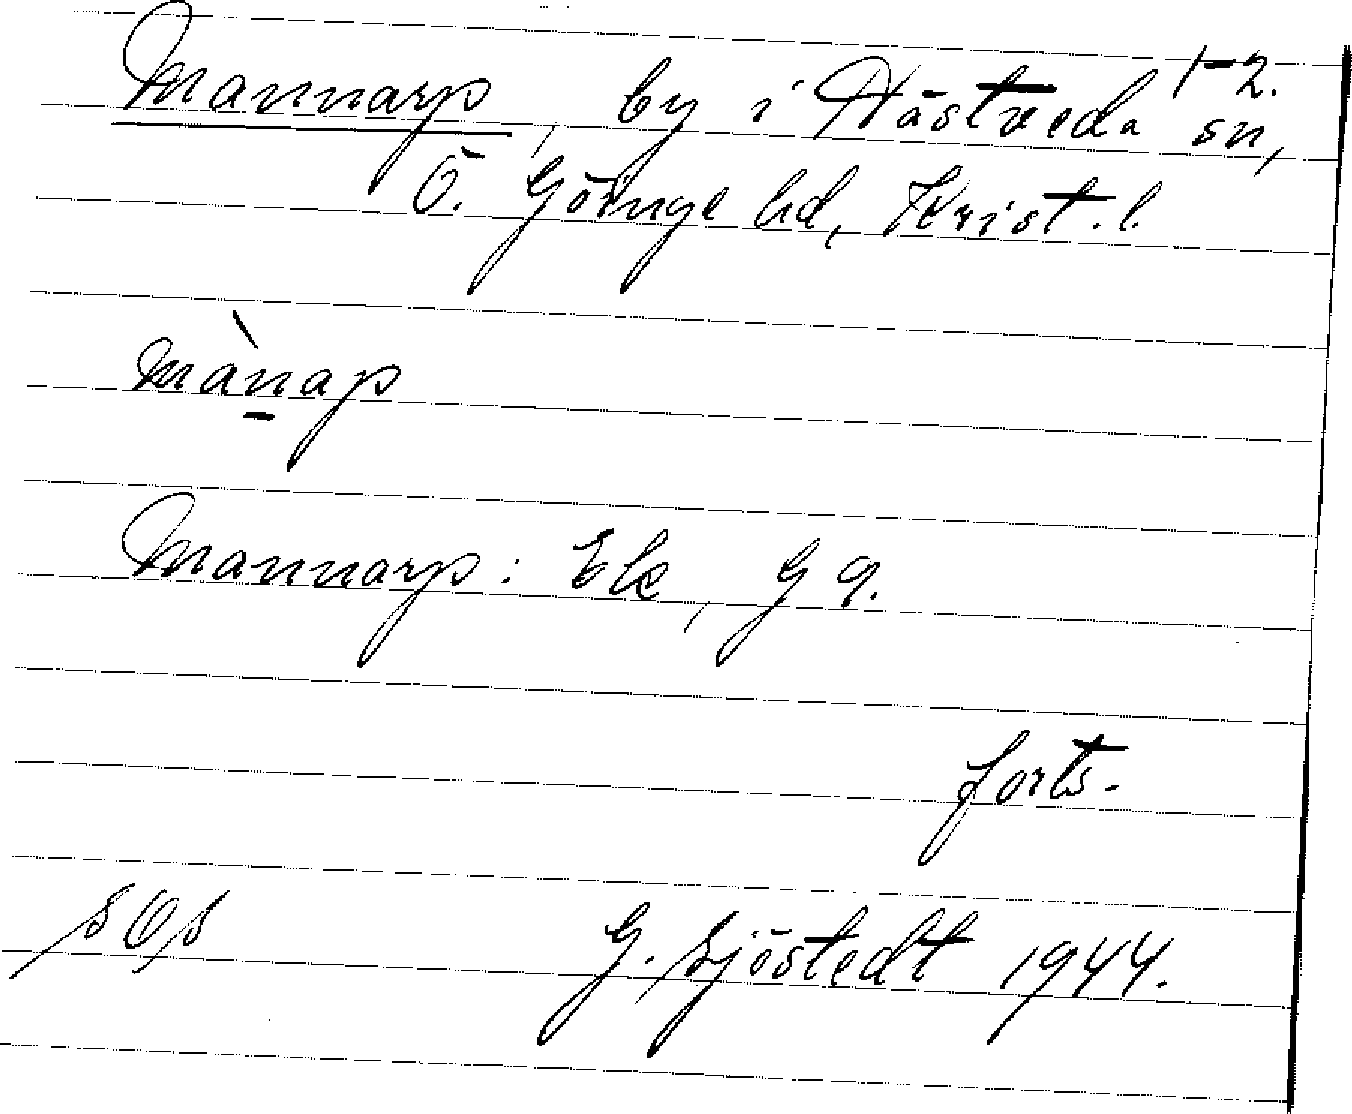 1-2.
Mannarp, by i Hästveda sn,
Ö. Göinge hd, Krist. l.
mànap
Mannarp: Ek, G 9.
forts.
SOS G. Sjöstedt 1944.